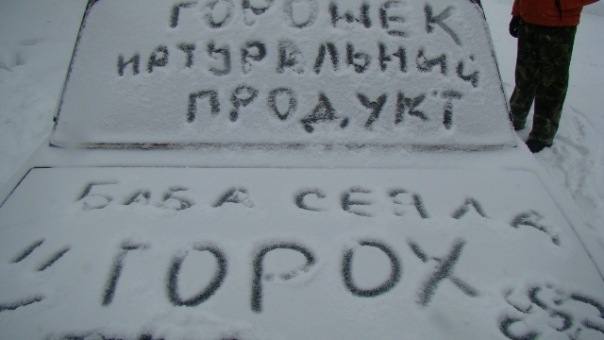 ГОРОШЕК
НАТУРАЛЬНЫЙ
ПРОДУКТ
БАБА СЕЯЛА
ГОРОХ